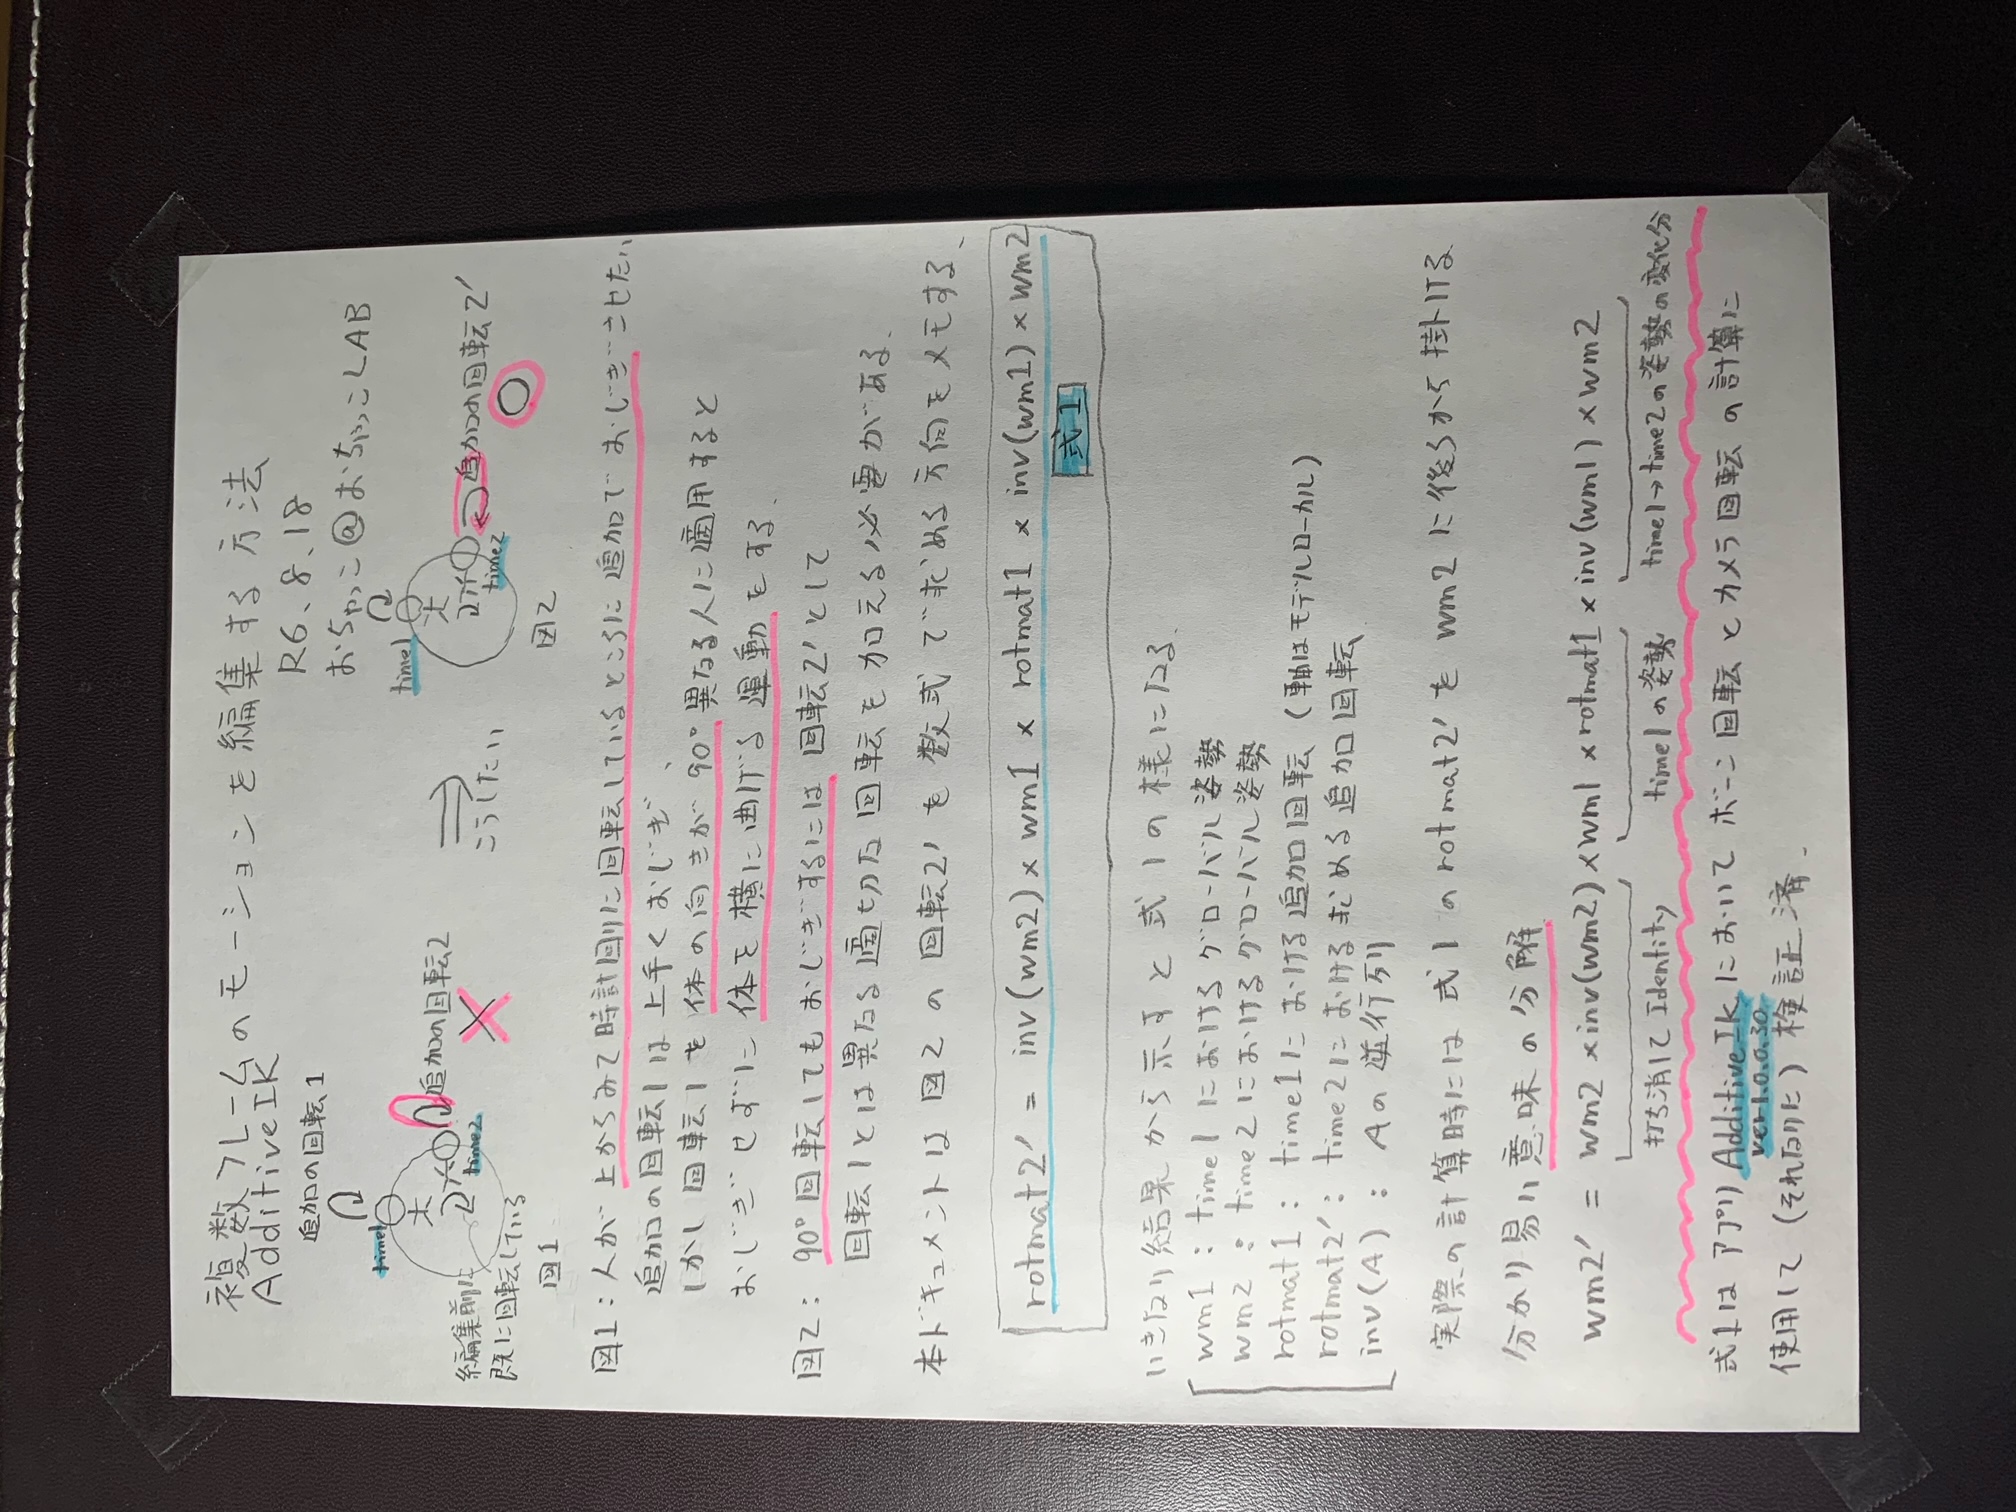 複数フレームのモーションを編集する方法
AdditiveIK
R6、8、18
おちゃっこ@おちゃっこLAB
追加の回転1
time1
追加の回転2
time2
編集前に
既に回転している
図1
⇒
こうしたい
time1
追加の回転2'
time2
図2
図1:人が上からみて時計回りに回転しているところに追加でおじぎさせたい
追加の回転1は上手くおじぎ、
しかし回転1を体の向きが90°異なる人に適用すると
おじぎせずに体を横に曲げる運動をする、
図2:90°回転してもおじぎするには回転2'として
回転1とは異なる適切な回転を加える必要がある、
本ドキュメントは図2の回転2'を数式で求める方向をメモする、
rotmat2' = inv(wm2) × wm1 × rotmat1 × inv(wm1) × wm2
式1
いきなり結果から示すと式1の様になる、
wm1:time1におけるグローバル姿勢
wm2:time2におけるグローバル姿勢
rotmat1:time1における追加回転(軸はモデルローカル)
rotmat2':time2における求める追加回転
inv(A):Aの逆行列
実際の計算時には式1のrotmat2'をwm2に後ろから掛ける
分かり易い意味の分解
wm2' = wm2 × inv(wm2) × wm1 × rotmat1 × inv(wm1) × wm2
打ち消してIdentity
time1の姿勢
time1→time2の姿勢の変化分
式1はアプリAdditiveIKにおいてボーン回転とカメラ回転の計算に
ver1.0.0.30
使用して(それなりに)検証済、